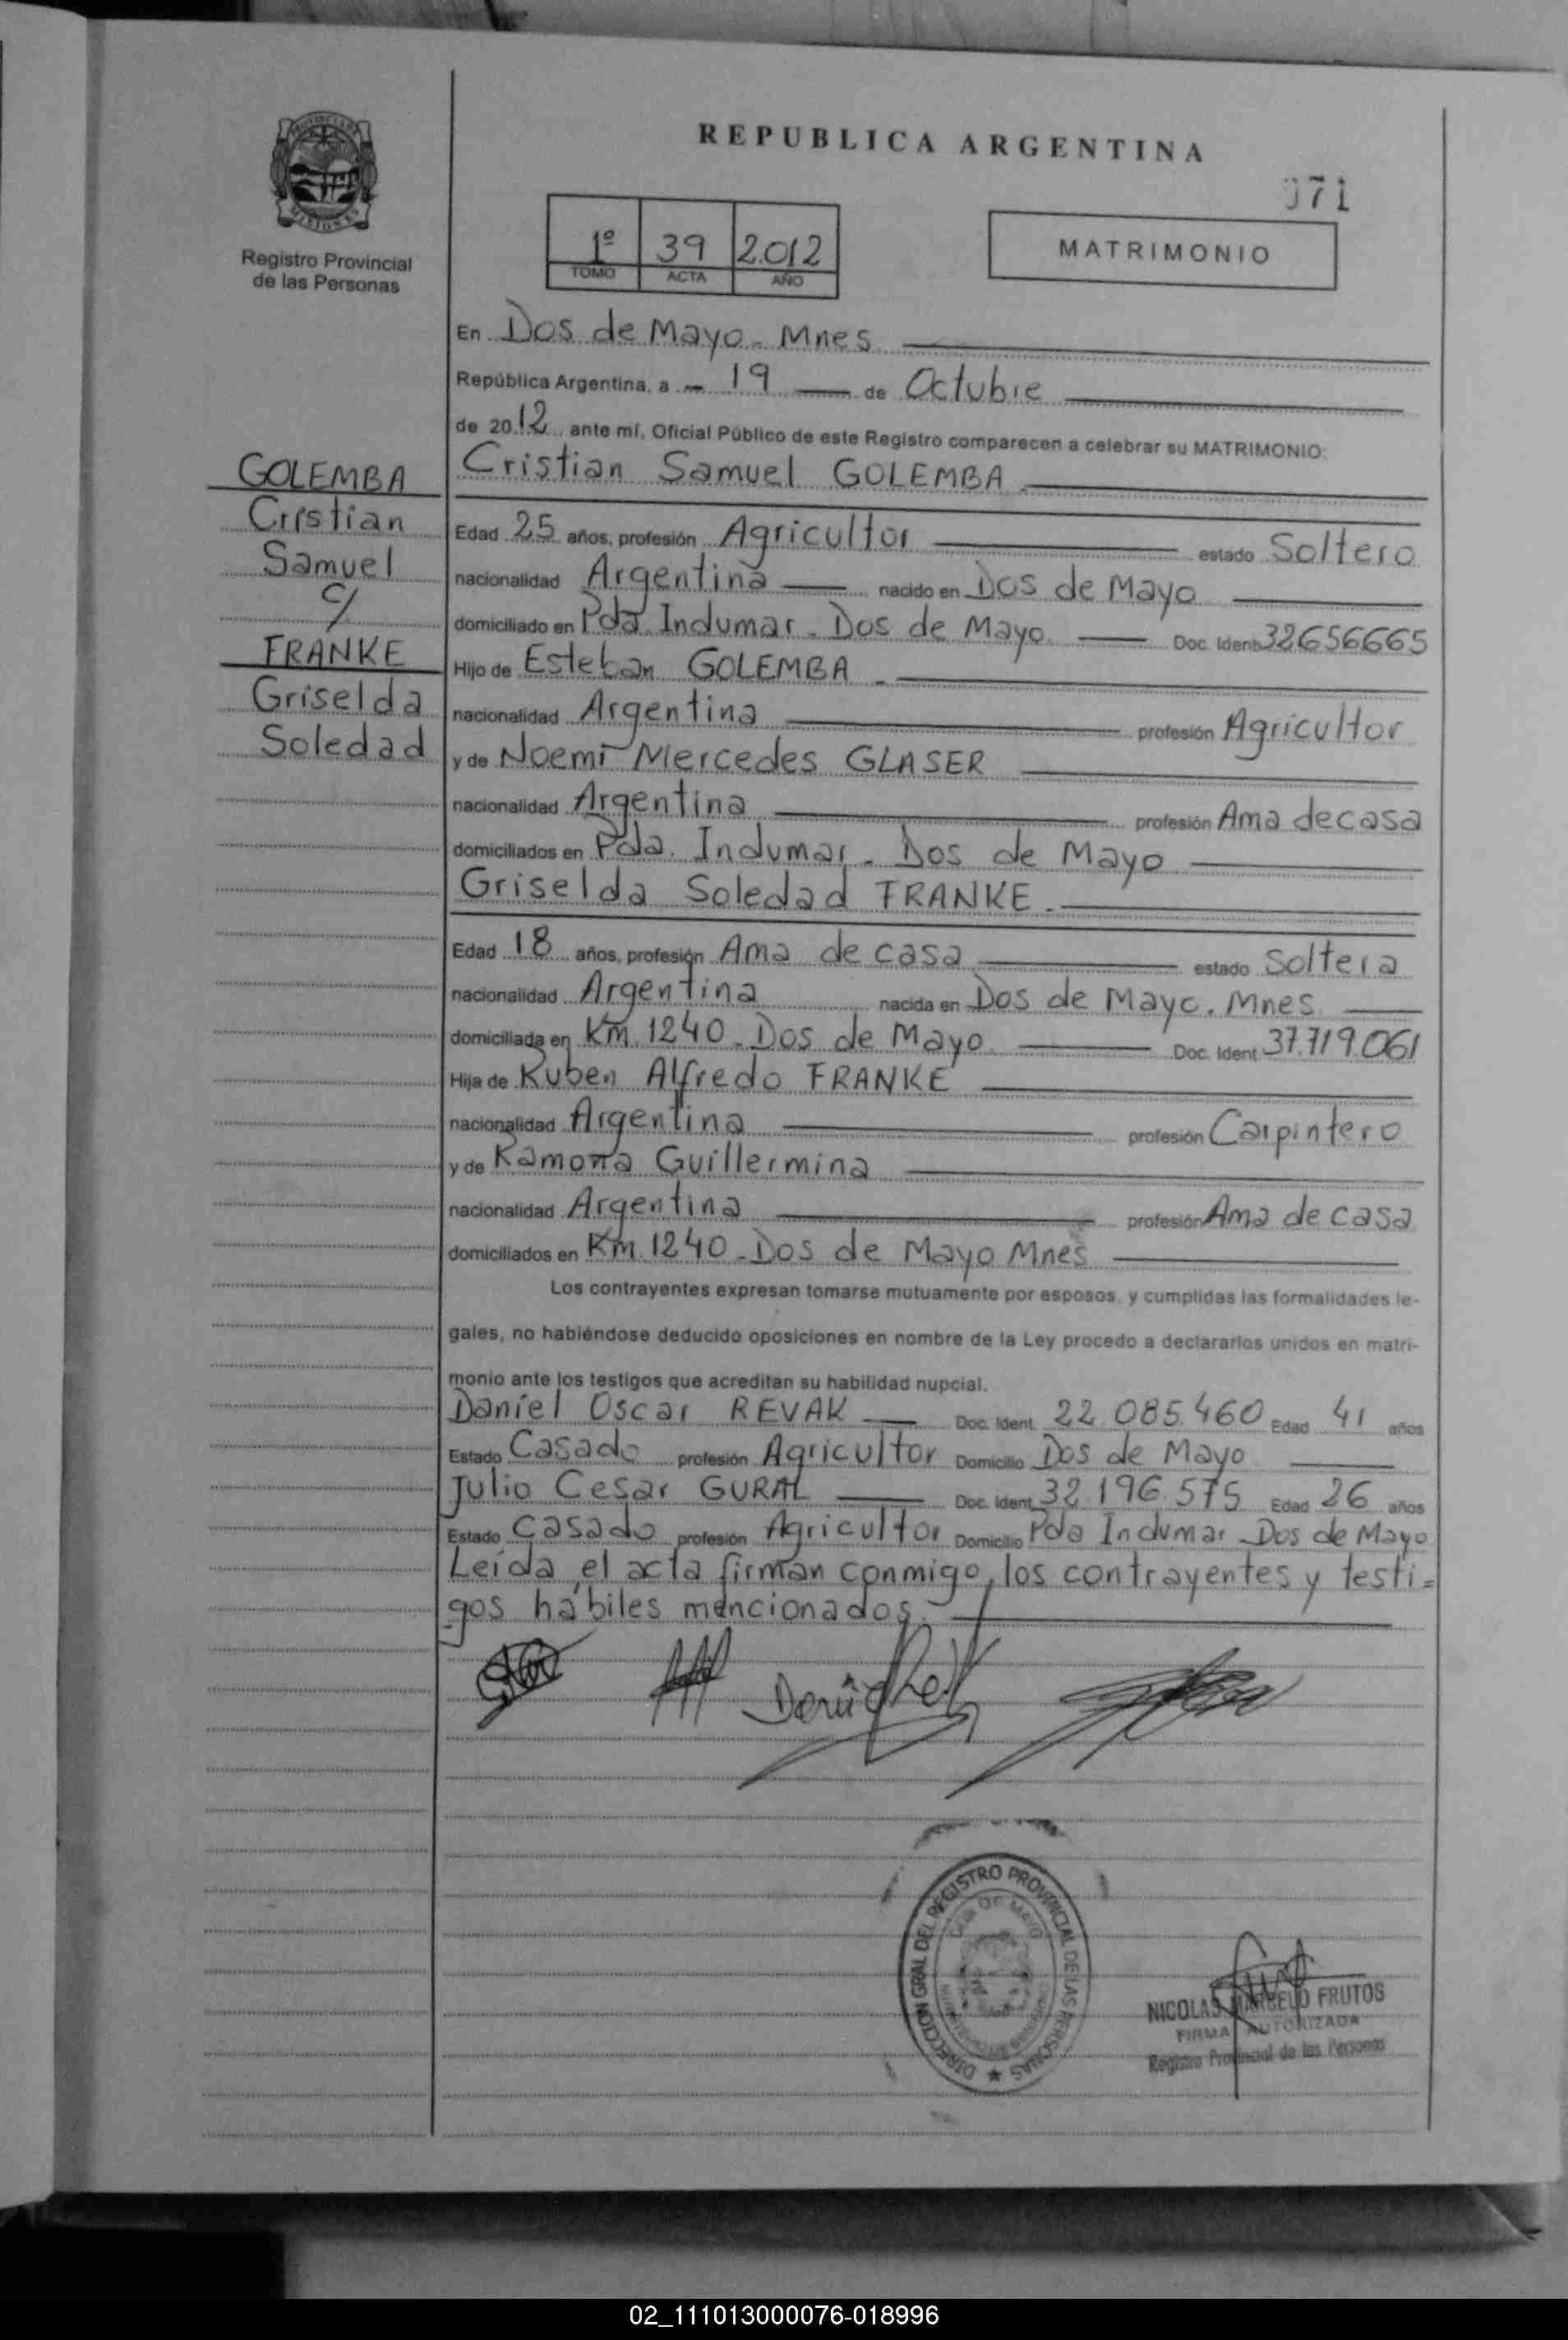 PROVINCIA DE
MISIONES
Registro Provincial
de las Personas
REPUBLICA ARGENTINA
071
1º 39 2.012
TOMO ACTA AÑO
MATRIMONIO
GOLEMBA
Cristian
Samuel
c/
FRANKE
Griselda
Soledad
En Dos de Mayo - Mnes
República Argentina, a - 19 de Octubre
de 2012 ante mí, Oficial Público de este Registro comparecen a celebrar su MATRIMONIO:
Cristian Samuel GOLEMBA
Edad 25 años, profesión Agricultor estado Soltero
nacionalidad Argentina nacido en Dos de Mayo
domiciliado en Pda Indumar - Dos de Mayo Doc. Ident 32656665
Hijo de Esteban GOLEMBA -
nacionalidad Argentina profesión Agricultor
y de Noemí Mercedes GLASER
nacionalidad Argentina profesión Ama de casa
domiciliados en Pda. Indumar - Dos de Mayo
Griselda Soledad FRANKE -
Edad 18 años, profesión Ama de casa estado Soltera
nacionalidad Argentina nacida en Dos de Mayo. Mnes
domiciliada en Km. 1240 - Dos de Mayo Doc. Ident 37.719.061
Hija de Ruben Alfredo FRANKE
nacionalidad Argentina profesión Carpintero
y de Ramona Guillermina
nacionalidad Argentina profesión Ama de casa
domiciliados en Km. 1240 - Dos de Mayo Mnes
Los contrayentes expresan tomarse mutuamente por esposos, y cumplidas las formalidades le-
gales, no habiéndose deducido oposiciones en nombre de la Ley procedo a declararlos unidos en matri-
monio ante los testigos que acreditan su habilidad nupcial.
Daniel Oscar REVAK Doc. Ident. 22.085.460 Edad 41 años
Estado Casado profesión Agricultor Domicilio Dos de Mayo
Julio Cesar GURAL Doc. Ident. 32.196.575 Edad 26 años
Estado Casado profesión Agricultor Domicilio Pda Indumar - Dos de Mayo
Leída el acta firman conmigo, los contrayentes y testi=
gos hábiles mencionados.
DIRECCION GRAL DEL REGISTRO PROVINCIAL DE LAS PERSONAS
DOS DE MAYO
NICOLAS MARCELO FRUTOS
FIRMA AUTORIZADA
Registro Provincial de las Personas
02_111013000076-018996